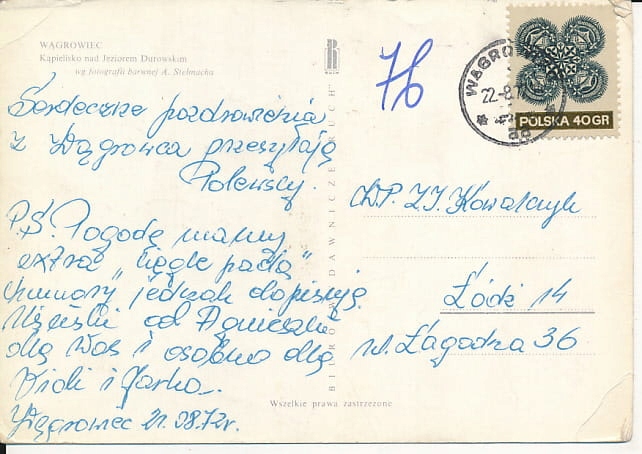 WĄGROWIEC
Kąpielisko nad Jeziorem Durowskim
wg fotografii barwnej A. Stelmacha
Serdeczne pozdrowienia
z Wągrowca przesyłają
Polewscy.
P.S. Pogodę mamy
extra "ciągle pada"
humory jednak dopisują
Uściski od Agnieszki
dla Was i osobno dla
Violi i Jarka.
Wągrowiec 21.08.72r.
BIURO WYDAWNICZE RUCH
76
WĄGRO
22-8
POLSKA 40 GR
W.P. Z.J. Kowalczyk
Łódź 14
ul. Łagodna 36
Wszelkie prawa zastrzeżone